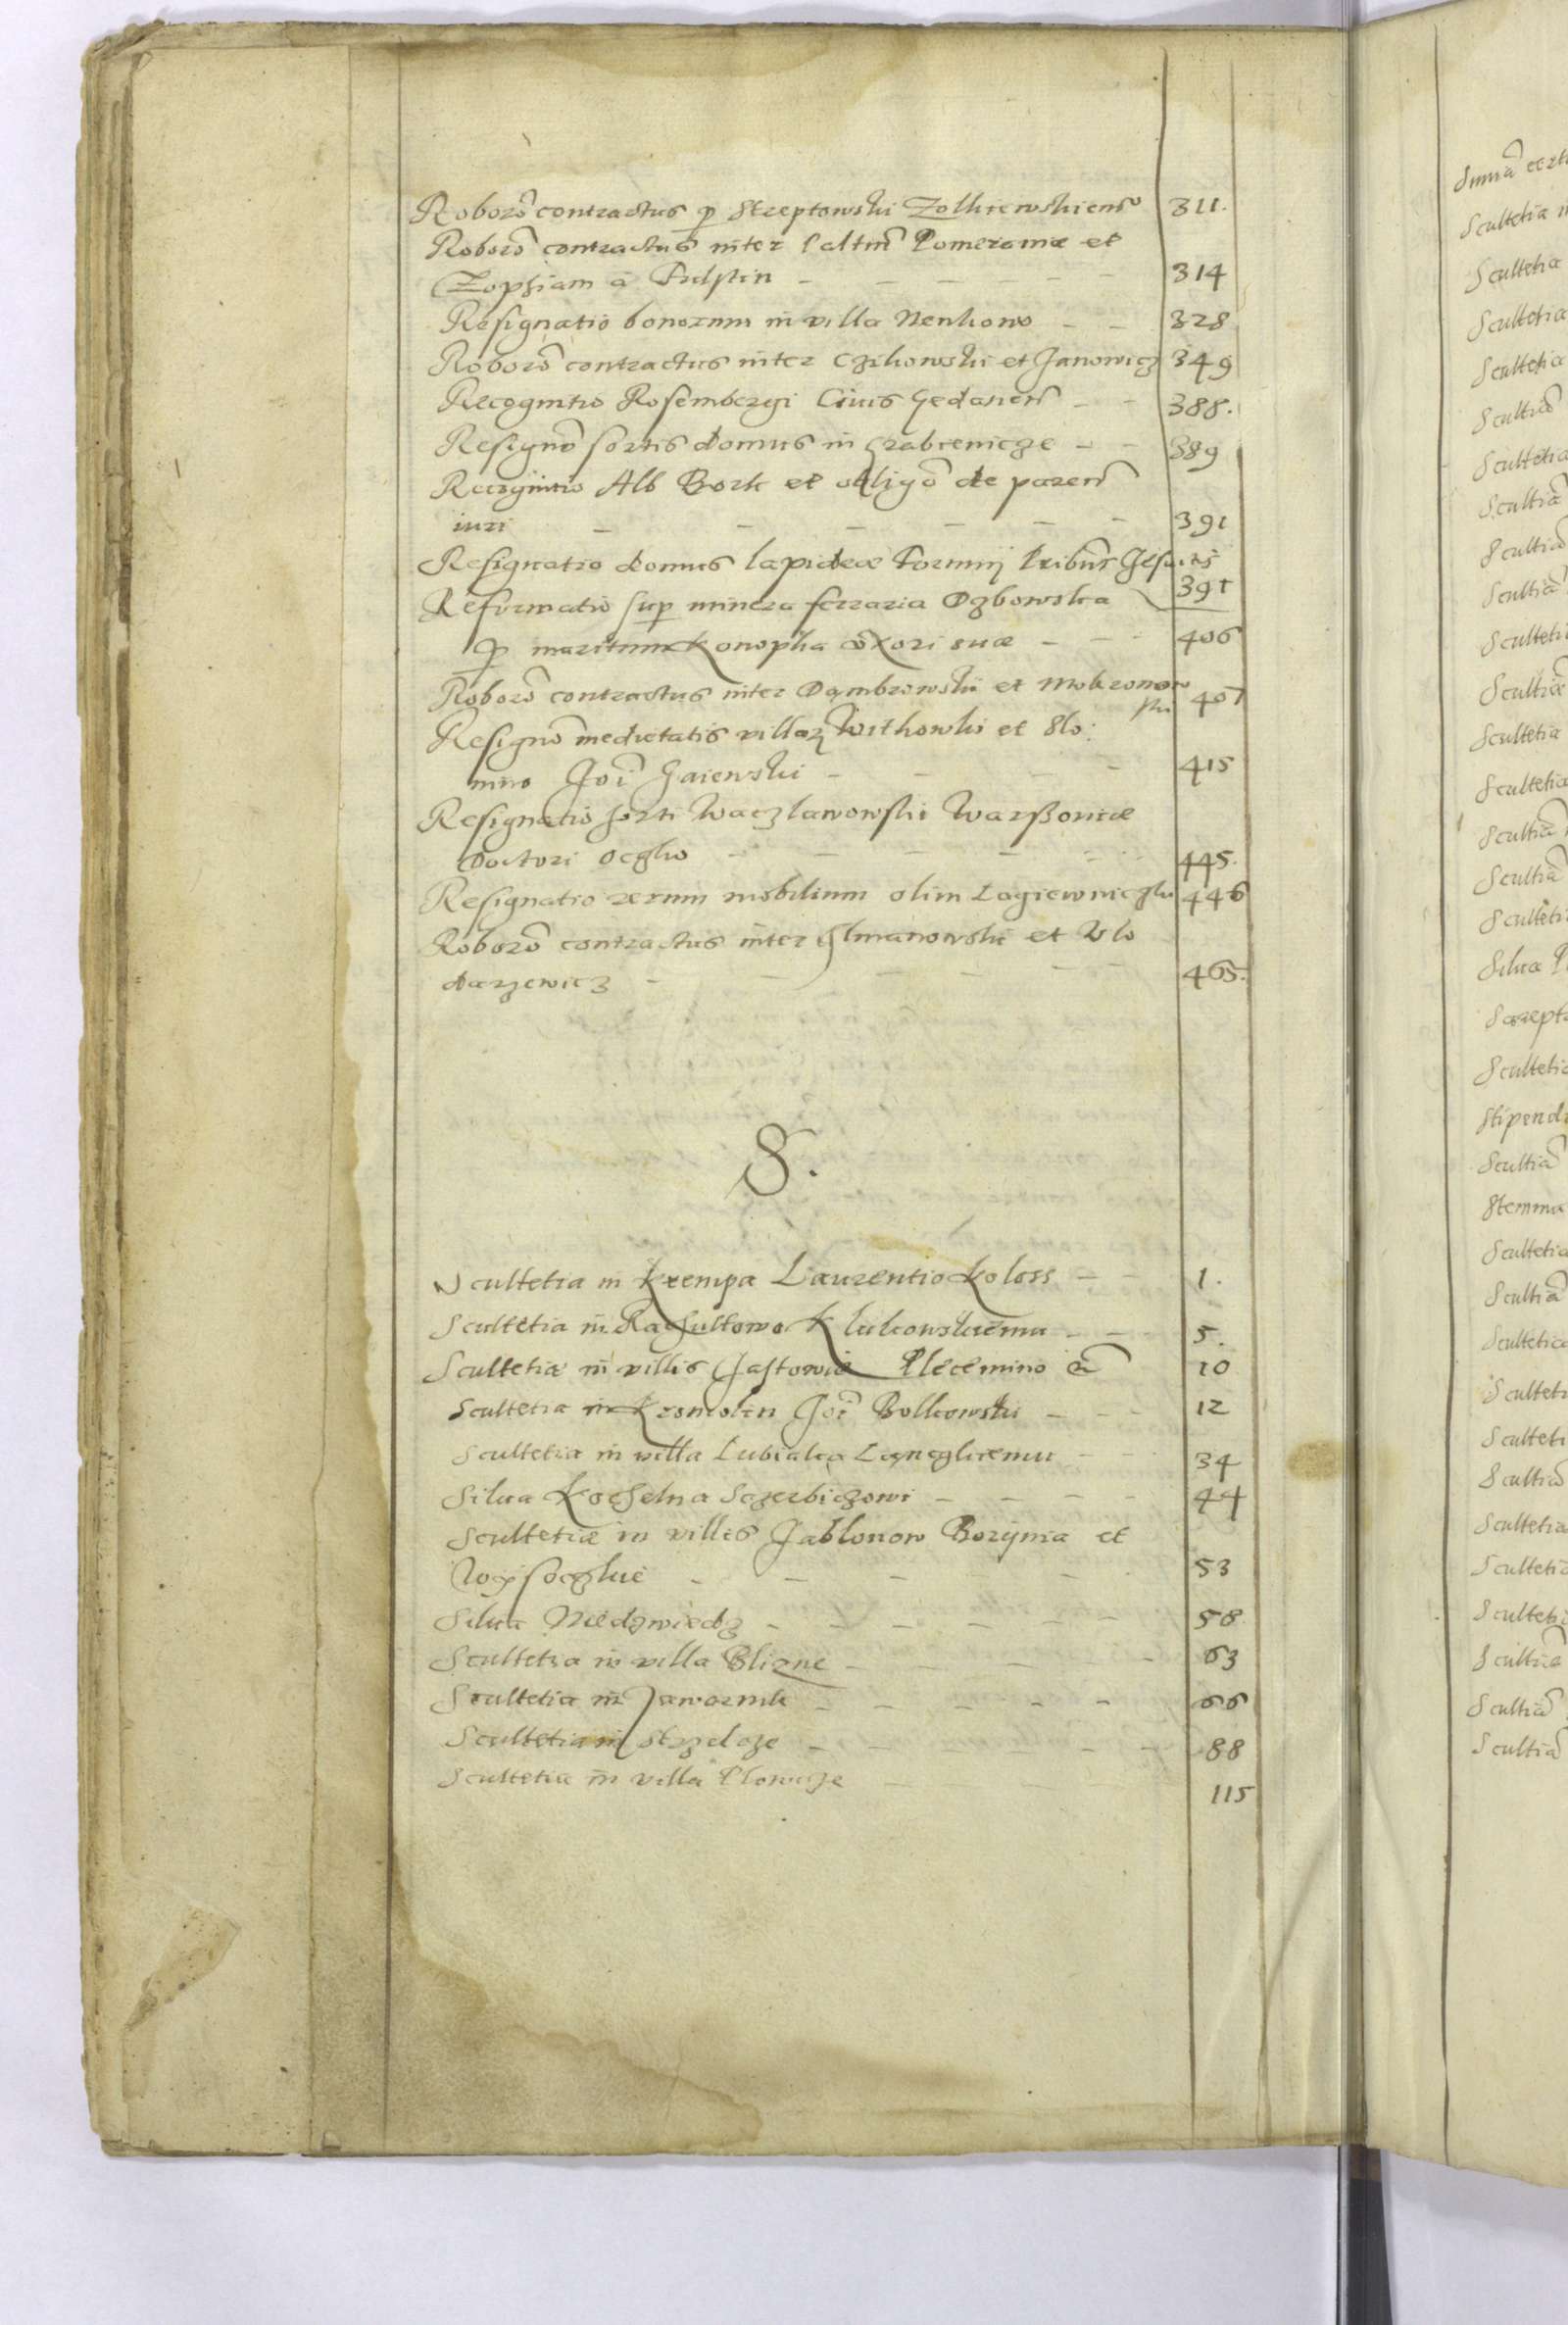 Roborõ contractus p Streptowski Zolkiewskiens 311.
Roborõ contractus inter Paltin Pomeraniæ et
Zophiam à Fulstin 314
Resignatio bonorum in villa Nenkowo 328
Roborõ contractus inter Czikowski et Janowicz 349
Recognitio Rosembergi Civis Gedanen 388.
Resignõ sortis domus in Grabienicze 389
Recognitio Alb Bork et obligõ de paren
iuri 391
Resignatio domus lapideæ Torunij tribus Jesuitis
391
Reformatio sup minera ferraria Dzbowska
p maritum Konopka uxori suæ 406
Roborõ contractus inter Dambrowski et Mokronow
ski 407
Resignõ medietatis villar Witkowki et Slo:
mino Joi Gaiewski 415
Resignatio sorti Waczlawowski Warssoviæ
Doctori Oczko 445.
Resignatio rerum mobilium olim Lagiewniczki 446
Roborõ contractus inter Glinanowski et Wlo
darzewicz 465.
S.
Scultetia in Krempa Laurentio Koloss 1.
Scultetia in Raczultowo Klukowskiemu 5.
Scultetiæ in villis Jastowie Plecemino &c 10
Scultetia in Kromolin Joi Bolkowski 12
Scultetia in villa Lubialca Laneczkiemu 34
Silva Kochelna Sczerbiczowi 44
Scultetiæ in villis Jablonow Borijnia et
Wyssoczkie 53
Silva Niedzwiedz 58
Scultetia in villa Blizne 63
Scultetia in Jawornik 66
Scultetia in Strzelcze 88
Scultetia in villa Plowicze 115
Scultetia
Scultetia
Scultetia
Scultetia
Scultiã
Scultetia
Scultiã
Scultiã
Scultiã
Scultetia
Scultiã
Scultetia
Scultetia
Scultiã
Scultiã
Scultetia
Silva
Scultetia
Scultiã
Scultetia
Scultiã
Scultetia
Scultiã
Scultetia
Scultetia
Scultiã
Scultiã
Scultiã